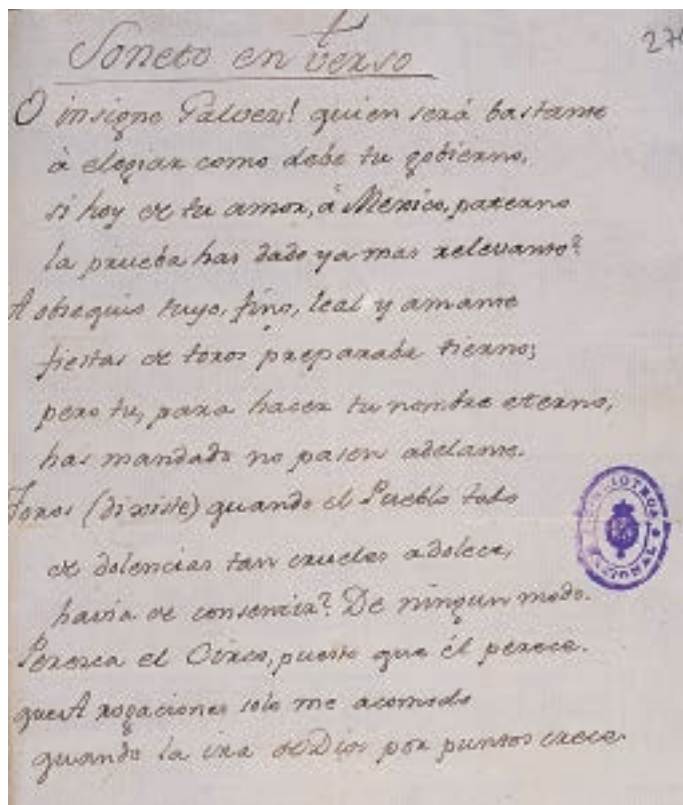 270
Soneto en verso
O insigne Galvez! quien será bastante
à elogiar como debe tu gobierno,
si hoy de tu amor, à Mexico, paterno
la prueba has dado ya mas relevante?
A obsequio tuyo, fino, leal y amante
fiestas de toros preparaba tierno;
pero tu, para hacer tu nombre eterno,
has mandado no pasen adelante.
Toros (dixiste) quando el Pueblo todo
de dolencias tan crueles adolece,
havia de consentir? De ningun modo.
Perezca el Circo, puesto que él perece.
que A rogaciones solo me acomodo
quando la ira de Dios por puntos crece.
BIBLIOTECA
NACIONAL